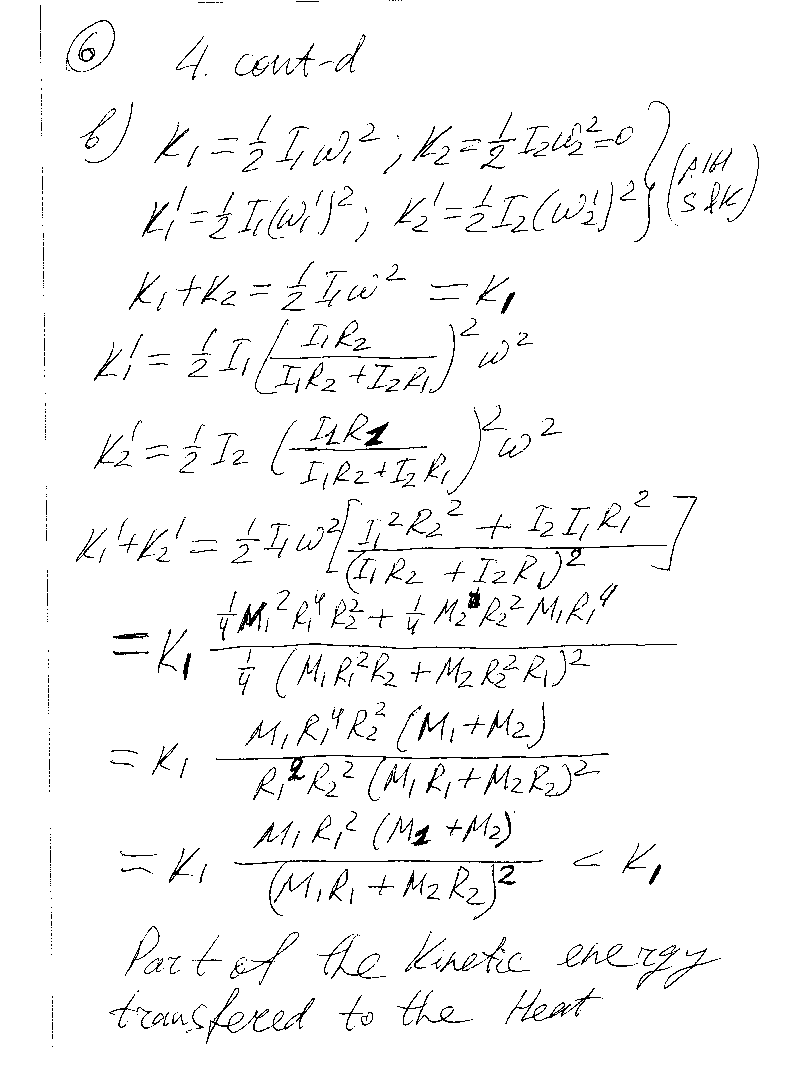 ⑥ 4. cont-d
b) K₁ = ½ I₁ω₁²; K₂ = ½ I₂ω₂² = 0
K₁' = ½ I₁(ω₁')²; K₂' = ½ I₂(ω₂')²
K₁ + K₂ = ½ I₁ω² = K₁
K₁' = ½ I₁ (I₁R₂ / (I₁R₂ + I₂R₁))² ω²
K₂' = ½ I₂ (I₁R₁ / (I₁R₂ + I₂R₁))² ω²
K₁' + K₂' = ½ I₁ω² [(I₁²R₂² + I₂I₁R₁²) / (I₁R₂ + I₂R₁)²]
= K₁ (¼ M₁²R₁⁴R₂² + ¼ M₂R₂²M₁R₁⁴) / (¼ (M₁R₁²R₂ + M₂R₂²R₁)²)
= K₁ M₁R₁⁴R₂² (M₁ + M₂) / (R₁²R₂² (M₁R₁ + M₂R₂)²)
= K₁ M₁R₁² (M₁ + M₂) / (M₁R₁ + M₂R₂)² < K₁
Part of the Kinetic energy
transfered to the Heat